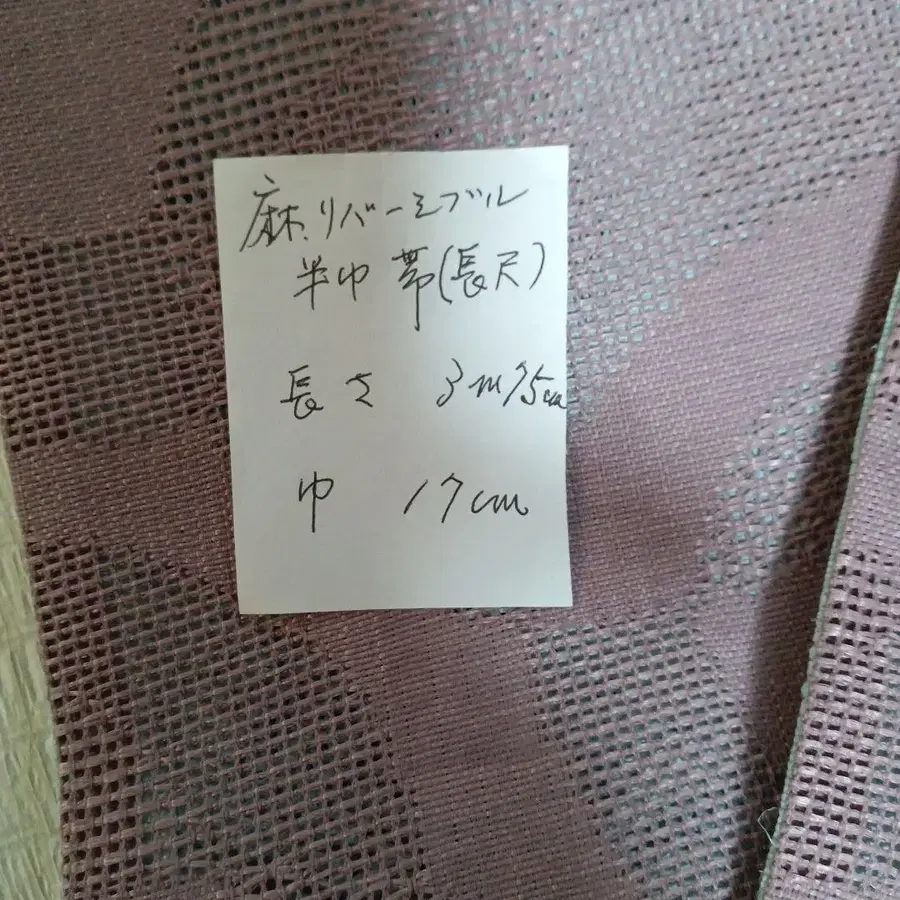 麻.リバーシブル
半巾帯(長尺)
長さ 3m75cm
巾 17cm